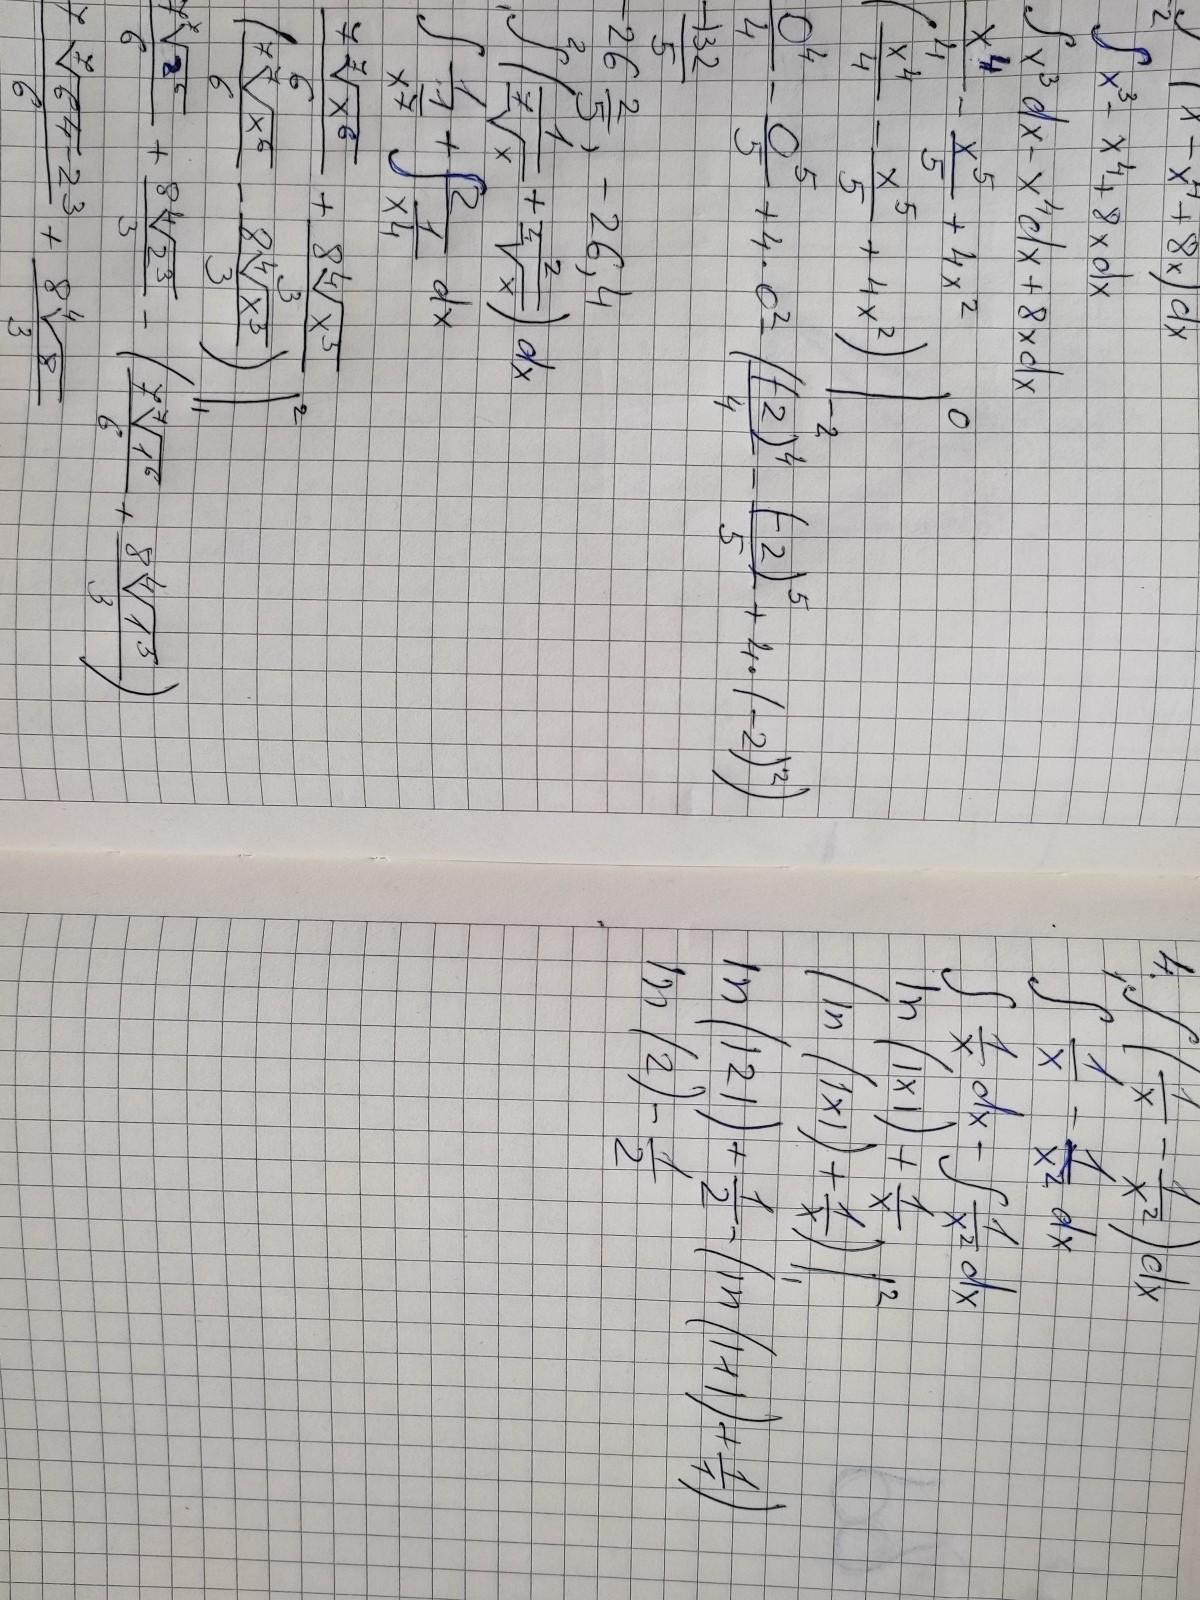 ∫(x-x⁴+8x)dx
-2
∫x³-x⁴+8xdx
∫x³dx-x⁴dx+8xdx
x⁴/4 - x⁵/5 + 4x²
(x⁴/4 - x⁵/5 + 4x²)|₋₂⁰
0⁴/4 - 0⁵/5 + 4·0² - ((-2)⁴/4 - (-2)⁵/5 + 4·(-2)²)
-132/5
-26 2/5, -26,4
₁∫²(1/⁷√x + 2/⁴√x)dx
∫1/x⁷ + ∫2 1/x4 dx
7⁷√x⁶/6 + 8⁴√x³/3
(7⁷√x⁶/6 - 8⁴√x³/3)|₁²
7⁷√2⁶/6 + 8⁴√2³/3 - (7⁷√1⁶/6 + 8⁴√1³/3)
7⁷√64-23/6 + 8⁴√8/3
4. ₁∫(1/x - 1/x²)dx
∫1/x - 1/x² dx
∫1/x dx - ∫1/x² dx
ln(|x|) + 1/x
(ln(|x|) + 1/x)|₁²
ln(|2|) + 1/2 - (ln(|1|) + 1/1)
ln(2) - 1/2